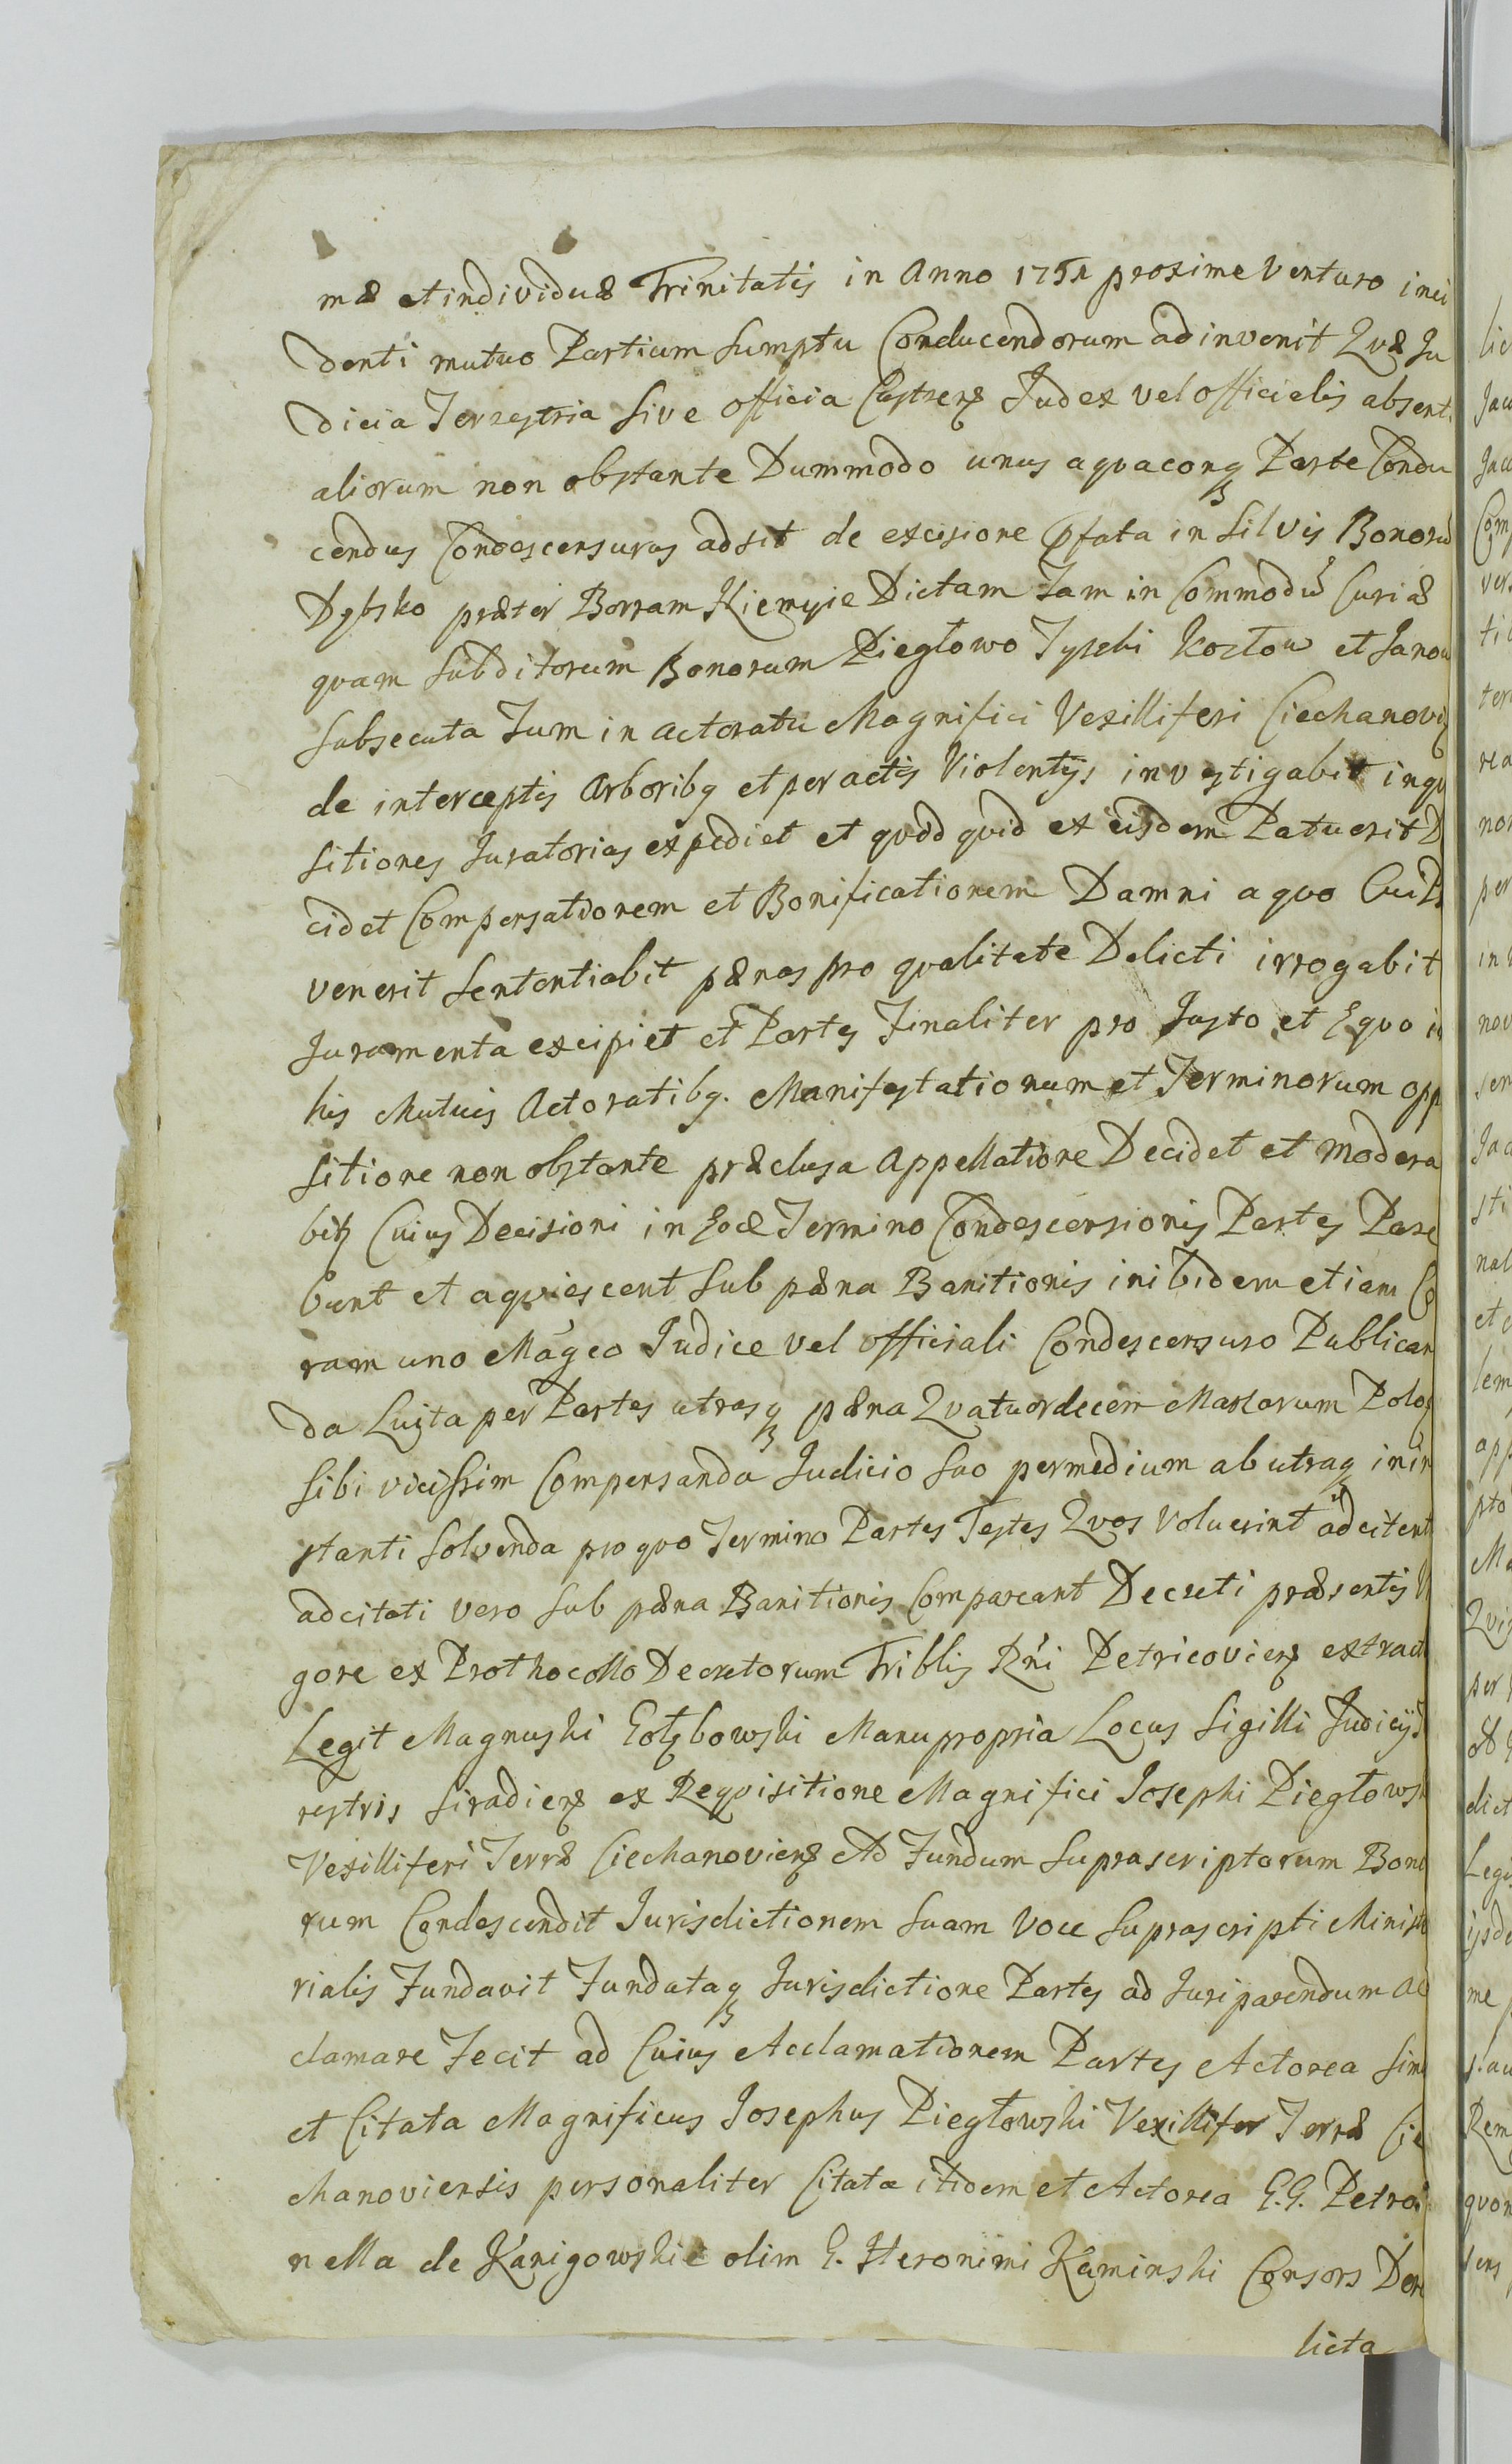 mæ et individuæ Trinitatis in Anno 1751 proxime Venturo inci
denti mutuo Partium Sumptu Conducendorum adinvenit Quæ Ju
dicia Terrestria Sive officia Castrens Judex vel officialis absent
aliorum non obstante Dummodo unus aquacunq Parte Condu
cendus Condescensurus adsit de excisione Pfata in Silvis Bonoru
Dębsko præter Borram Kiemyie Dictam Tam in Commodu Curiæ
quam Subditorum Bonorum Piegłowo Tyszki Kozłow et Janow
Subsecuta Tum in actoratu Magnifici Vexilliferi Ciechanovi
de interceptis Arboribq et peractis Violentys investigabit inqu
sitiones Juratorias expediet et quod quid ex eisdem Patuerit D
cidet Compensationem et Bonificationem Damni a quo Cui
venerit Sententiabit pænas pro qualitate Delicti irrogabit
Juramenta excipiet et Partes Finaliter pro Justo et Equo i
his Mutuis Actoratibq. Manifestationum et Terminorum opp
sitione non obstante præclusa Appellatione Decidet et modera
bitz Cuius Decisioni in Termino Condescensionis Partes Pare
bunt et aquiescent Sub pæna Banitionis inibidem etiam Co
ram uno Magco Judice vel officiali Condescensuro Publican
da Luita per Partes utrasq pæna Quatuordecem Marcarum Polo
Sibi vicissim Compensanda Judicio Suo permedium ab utraq in in
stanti Solvenda pro quo Termino Partes Testes Quos Voluerint adcitent
adcitati vero Sub pæna Banitionis Compareant Decreti præsentis V
gore ex Prothocollo Decretorum Triblis Rni Petricoviens extract
Legit Magnuski Gołębowski Manu propria Locus Sigilli Judicy T
restris Siradiens ex Requisitione Magnifici Josephi Piegłows
Vexilliferi Terræ Ciechanoviens Ad Fundum Suprascriptorum Bono
rum Condescendit Jurisdictionem Suam Voce Suprascripti Ministe
rialis Fundavit Fundataq Jurisdictione Partes ad Juri parendum Ac
clamare Fecit ad Cuius Acclamationem Partes Actorea Simu
et Citata Magnificus Josephus Piegłowski Vexillifer Terræ Cie
chanoviensis personaliter Citata itidem et Actorea G.G. Petro
nella de Kanigowskie olim G. Heronimi Kaminski Consors Dere
licta